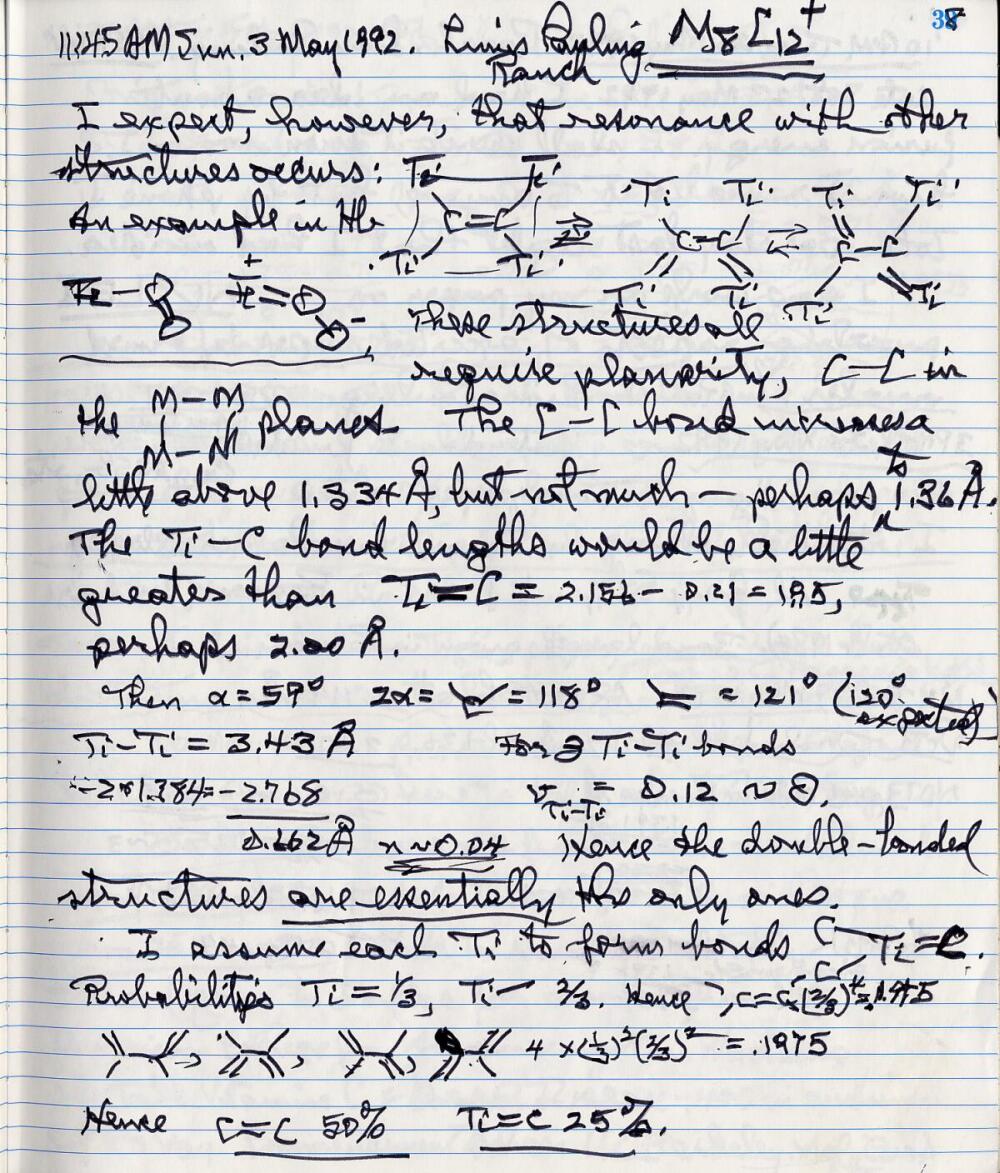 38
11:45 AM Sun. 3 May 1992. Linus Pauling M8C12+
Ranch
I expect, however, that resonance with other
structures occurs: Ti Ti
An example in the C=C Ti Ti Ti Ti
Ti Ti C=C C–C
Ti Ti Ti Ti
These structures all
require planarity, C=C in
the M–M M–M planes. The C–C bond increases a
little above 1.334 Å, but not much – perhaps to 1.36 Å.
The Ti–C bond lengths would be a little
greater than Ti=C = 2.156 – 0.21 = 1.95,
perhaps 2.00 Å.
Then α = 59° 2α = = 118° = 121° (120° expected)
Ti–Ti = 3.43 Å For 3 Ti–Ti bonds
–2×1.384 = –2.768 v Ti–Ti = 0.12 ~ 0.
0.662 Å n ~ 0.04 Hence the double-bonded
structures are essentially the only ones.
I assume each Ti to form bonds C C Ti=C.
Probabilities Ti= 1/3, Ti– 2/3. Hence C=C (2/3)⁴ = .1975
4 × (1/3)² (2/3)² = .1975
Hence C=C 50% Ti=C 25%.